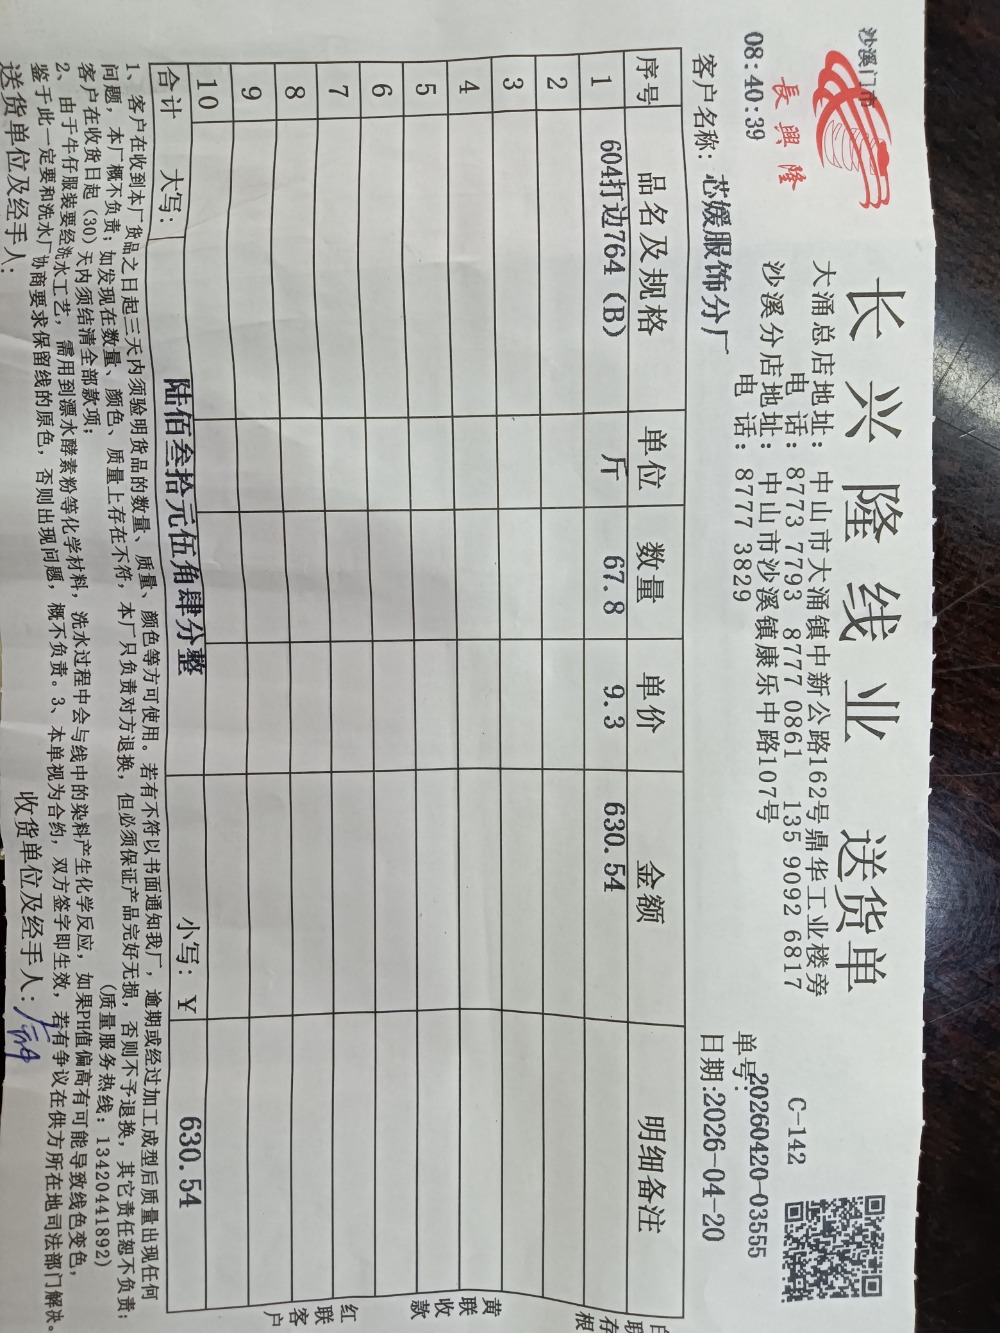 沙溪门市
長興隆
08:40:39
长兴隆线业 送货单
大涌总店地址：中山市大涌镇中新公路162号鼎华工业楼旁
电 话：8773 7793 8777 0861 135 9092 6817
沙溪分店地址：中山市沙溪镇康乐中路107号
电 话：8777 3829
C-142
单号:20260420-03555
客户名称：芯媛服饰分厂
日期:2026-04-20
序号 品名及规格 单位 数量 单价 金额 明细备注
1 604打边764（B） 斤 67.8 9.3 630.54
2
3
4
5
6
7
8
9
10
合计 大写：陆佰叁拾元伍角肆分整 小写：¥ 630.54
白联存根
黄联收款
红联客户
1、客户在收到本厂货品之日起三天内须验明货品的数量、质量、颜色等方可使用。若有不符以书面通知我厂，逾期或经过加工成型后质量出现任何
问题，本厂概不负责；如发现在数量、颜色、质量上存在不符，本厂只负责对方退换，但必须保证产品完好无损，否则不予退换，其它责任恕不负责；
客户在收货日起（30）天内须结清全部款项； （质量服务热线：13420441892）
2、由于牛仔服装要经洗水工艺，需用到漂水酵素粉等化学材料，洗水过程中会与线中的染料产生化学反应，如果PH值偏高有可能导致线色变色，
鉴于此一定要和洗水厂协商要求保留线的原色，否则出现问题，概不负责。3、本单视为合约，双方签字即生效，若有争议在供方所在地司法部门解决。
送货单位及经手人： 收货单位及经手人：